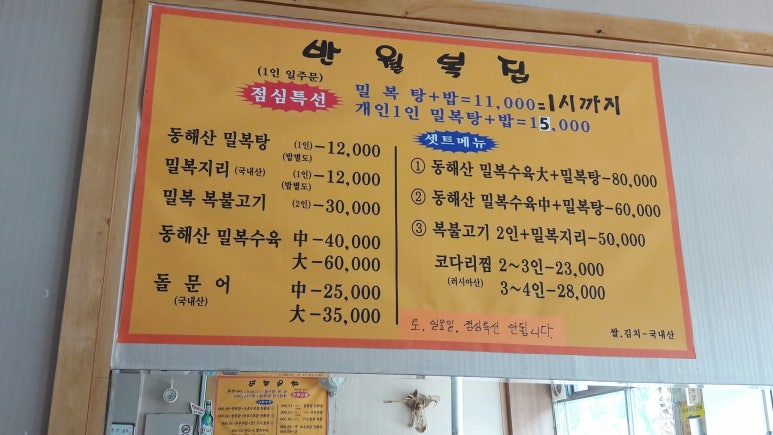 반월복집
(1인 일주문)
점심특선
밀 복 탕+밥=11,000=1시까지
개인1인 밀복탕+밥=15,000
동해산 밀복탕 (1인)(밥별도) -12,000
밀복지리 (국내산) (1인)(밥별도) -12,000
밀복 복불고기 (2인) -30,000
동해산 밀복수육 中-40,000
大-60,000
돌 문 어 (국내산) 中-25,000
大-35,000
셋트메뉴
① 동해산 밀복수육大+밀복탕-80,000
② 동해산 밀복수육中+밀복탕-60,000
③ 복불고기 2인+밀복지리-50,000
코다리찜 2~3인-23,000
(러시아산) 3~4인-28,000
토. 일요일. 점심특선 안됩니다.
쌀.김치-국내산